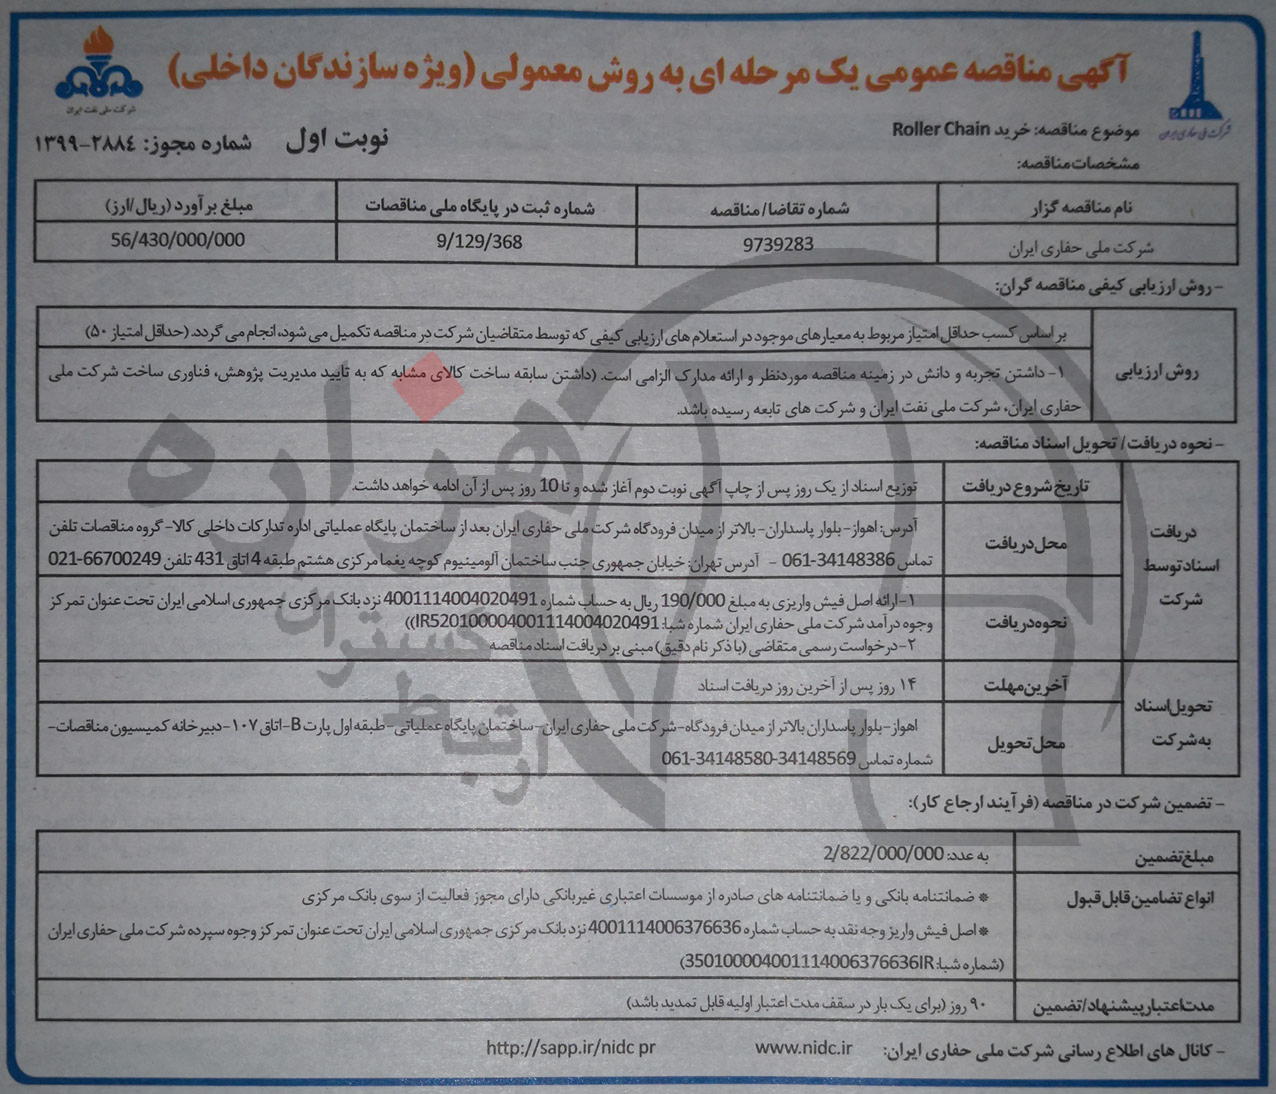 آگهی مناقصه عمومی یک مرحله ای به روش معمولی (ویژه سازندگان داخلی)
شرکت ملی نفت ایران
شرکت ملی حفاری ایران
موضوع مناقصه: خرید Roller Chain
نوبت اول
شماره مجوز: ۲۸۸۴-۱۳۹۹
مشخصات مناقصه:
نام مناقصه گزار
شماره تقاضا/مناقصه
شماره ثبت در پایگاه ملی مناقصات
مبلغ برآورد (ریال/ارز)
شرکت ملی حفاری ایران
9739283
9/129/368
56/430/000/000
- روش ارزیابی کیفی مناقصه گران:
روش ارزیابی
بر اساس کسب حداقل امتیاز مربوط به معیارهای موجود در استعلام های ارزیابی کیفی که توسط متقاضیان شرکت در مناقصه تکمیل می شود، انجام می گردد. (حداقل امتیاز ۵۰)
۱- داشتن تجربه و دانش در زمینه مناقصه موردنظر و ارائه مدارک الزامی است. (داشتن سابقه ساخت کالای مشابه که به تایید مدیریت پژوهش، فناوری ساخت شرکت ملی
حفاری ایران، شرکت ملی نفت ایران و شرکت های تابعه رسیده باشد.
- نحوه دریافت/ تحویل اسناد مناقصه:
دریافت
اسناد توسط
شرکت
تاریخ شروع دریافت
توزیع اسناد از یک روز پس از چاپ آگهی نوبت دوم آغاز شده و تا 10 روز پس از آن ادامه خواهد داشت.
محل دریافت
آدرس: اهواز- بلوار پاسداران- بالاتر از میدان فرودگاه شرکت ملی حفاری ایران بعد از ساختمان پایگاه عملیاتی اداره تدارکات داخلی کالا- گروه مناقصات تلفن
تماس 34148386-061 - آدرس تهران: خیابان جمهوری جنب ساختمان آلومینیوم کوچه یغما مرکزی هشتم طبقه 4 اتاق 431 تلفن 66700249-021
نحوه دریافت
۱- ارائه اصل فیش واریزی به مبلغ 190/000 ریال به حساب شماره 4001114004020491 نزد بانک مرکزی جمهوری اسلامی ایران تحت عنوان تمرکز
وجوه درآمد شرکت ملی حفاری ایران شماره شبا: IR520100004001114004020491))
۲- درخواست رسمی متقاضی (با ذکر نام دقیق) مبنی بر دریافت اسناد مناقصه
تحویل اسناد
به شرکت
آخرین مهلت
۱۴ روز پس از آخرین روز دریافت اسناد
محل تحویل
اهواز- بلوار پاسداران بالاتر از میدان فرودگاه- شرکت ملی حفاری ایران- ساختمان پایگاه عملیاتی- طبقه اول پارت B- اتاق ۱۰۷- دبیرخانه کمیسیون مناقصات-
شماره تماس 34148569-34148580-061
- تضمین شرکت در مناقصه (فرآیند ارجاع کار):
مبلغ تضمین
به عدد: 2/822/000/000
انواع تضامین قابل قبول
* ضمانتنامه بانکی و یا ضمانتنامه های صادره از موسسات اعتباری غیربانکی دارای مجوز فعالیت از سوی بانک مرکزی
* اصل فیش واریز وجه نقد به حساب شماره 4001114006376636 نزد بانک مرکزی جمهوری اسلامی ایران تحت عنوان تمرکز وجوه سپرده شرکت ملی حفاری ایران
(شماره شبا: 350100004001114006376636IR)
مدت اعتبار پیشنهاد/تضمین
۹۰ روز (برای یک بار در سقف مدت اعتبار اولیه قابل تمدید باشد)
- کانال های اطلاع رسانی شرکت ملی حفاری ایران: www.nidc.ir http://sapp.ir/nidc pr
هزاره
گستران
ارتباط